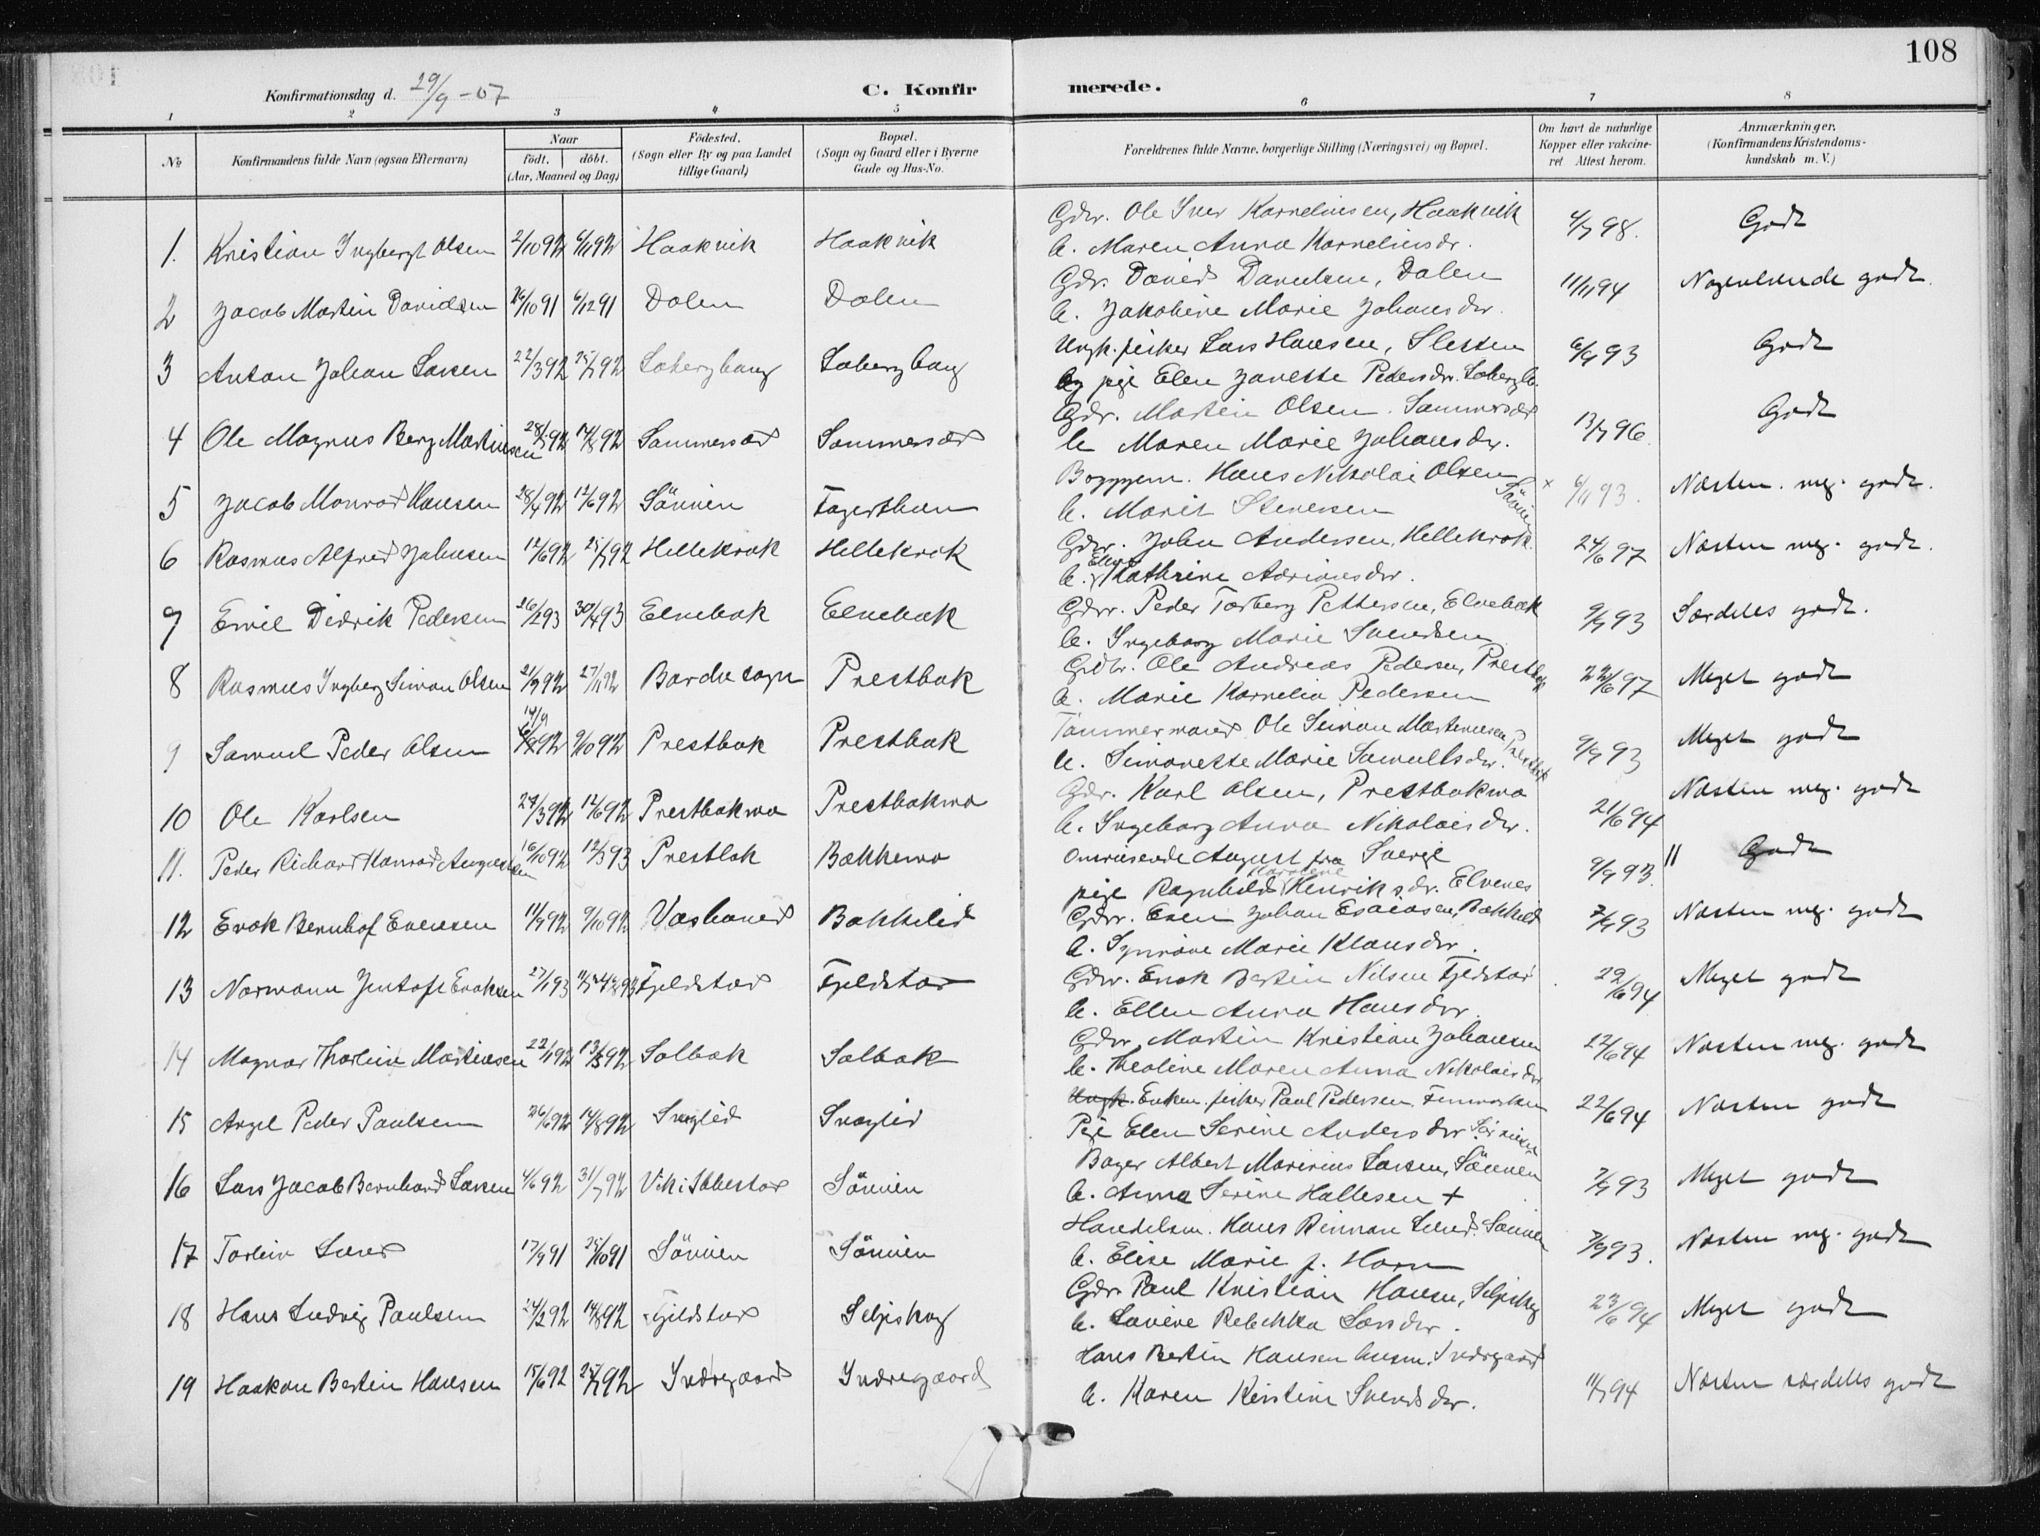 108
Konfirmationsdag d. 29/9 - 07
C. Konfirmerede.
1 2 3 4 5 6 7 8
No
Konfirmandens fulde Navn (ogsaa Efternavn)
Naar født. døbt. (Aar, Maaned og Dag)
Fødested. (Sogn eller By og paa Landet tillige Gaard)
Bopæl. (Sogn og Gaard eller i Byerne Gade og Hus-No.
Forældrenes fulde Navne, borgerlige Stilling (Næringsvei) og Bopæl.
Om havt de naturlige Kopper eller vakcineret. Attest herom.
Anmærkninger. (Konfirmandens Kristendomskundskab m. V.)
1. Kristian Ingbergt Olsen 2/10 92 6/11 92 Haakvik Haakvik Gdr. Ole Iver Korneliusen, Haakvik 98. Godt
h. Maren Anna Korneliusdr.
2 Jacob Martin Davidsen 26/10 91 6/12 91 Dalen Dalen Gdr. David Danielsen, Dalen 11/11 94 Nogenlunde godt.
h. Jakobine Marie Johansdr.
3 Anton Johan Larsen 22/3 92 25/7 92 Lobergbaug Lobergbaug Ungk. fisker Lars Hansen, Sletten 6/9 93 Godt
og pige Elen Janette Pedersdr.
4 Ole Magnus Berg Martinsen 92 92 Sommersæt Sommersæt Gdr. Martin Olsen. Sommersæt 13/7 96. Godt
h. Maren Marie Johansdr.
5 Jacob Monrad Hansen 28/4 92 12/6 92 Sövien Fagerthun Hans Nikolai Olsen Sövien 6/11 93. Næsten. meg. godt.
h. Marit
6 Rasmus Alfred Johnsen 12/6 92 25/7 92 Hellekrok Hellekrok Gdr. John Andersen, Hellekrok. 24/6 97 Næsten meg. godt.
h. Elen Kathrine Adriansdr.
7 Emil Didrik Pedersen 26/2 93 30/4 93 Elvebak Elvebak Gdr. Peder Torberg Pettersen, Elvebak 9/9 93 Særdeles godt.
h. Ingeborg Marie Svendsen
8 Rasmus Ingberg Simon Olsen 21/9 92 27/11 92 Bardu sogn Prestbak Gdbr. Ole Andreas Pedersen, Prestbak 22/6 97 Meget godt
h. Marie Kornelia Pedersen
9 Samuel Peder Olsen 14/9 92 9/10 92 Prestbak Prestbak Tømmermand Ole Simon Martinusen, Prestbak 9/9 93 Meget godt
h. Simonette Marie Samuelsdr.
10 Ole Karlsen 27/3 92 12/6 92 Prestbakmo Prestbakmo Gdr. Karl Olsen, Prestbakmo 21/6 94 Næsten meg. godt
h. Ingeborg Anna Nikolaisdr.
11. Peder Richard Konrad Augustsen 16/10 92 12/3 93 Prestbak Bækkemo Omreisende August fra Sverige 9/9 93. " Godt
pige Ragnhild Karoline Henriksdr. Elvenes
12 Erok Bernhof Evensen 11/9 92 9/10 92 Vashaved Bakkelid Gdr. Even Johan Esaiasen, Bakkelid 7/9 93 Næsten meg. godt
h. Synnöve Marie Klausdr.
13 Normann Eroksen 27/1 93 93 Fjeldstad Fjeldstad Gdr. Erok Bertin Nilsen Fjeldstad 22/6 94 Meget godt
h. Ellen Anna Hansdr.
14 Magnar Thorlein Martinsen 22/1 92 13/3 92 Solbak Solbak Gdr. Martin Kristian Johansen 22/6 94 Næsten meg. godt
h. Theoline Maren Anna Nikolaisdr
15 Axel Peder Paulsen 26/6 92 14/8 92 Snoglid Snoglid Enkem. fisker Paul Pedersen. Finmarken 22/6 94 Næsten godt
Pige Elen Serine Andersdr
16 Lars Jacob Bernhard Larsen 4/6 92 31/7 92 Vik i Ibbestad Sövien Bager Albert Larsen, Sövien 7/9 93 Meget godt
h. Anna Serine Hallesen +
17 Torlein Lund 17/9 91 25/10 91 Sövien Sövien Handelsm. Hans Lund. Sövien 7/9 93. Næsten meg. godt
h. Elise Marie f. Horn
18 Hans Ludvig Paulsen 24/2 92 14/8 92 Fjeldstad Seljeskog Gdr. Paul Kristian Hansen, Seljeskog 23/6 94 Meget godt
h. Lovine Rebekka Larsdr.
19 Haakon Bertin Hansen 15/6 92 25/7 92 Indregaard Indregaard Hans Bertin Hansen Indregaard 11/7 94 Næsten særdeles godt
h. Karen Kirstine Svendsdr.